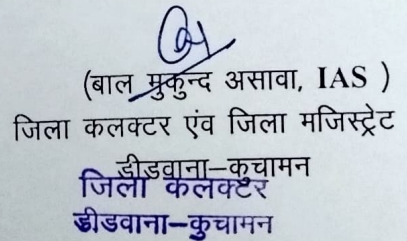 (बाल मुकुन्द असावा, IAS )
जिला कलक्टर एंव जिला मजिस्ट्रेट
डीडवाना–कुचामन
जिला कलक्टर
डीडवाना–कुचामन